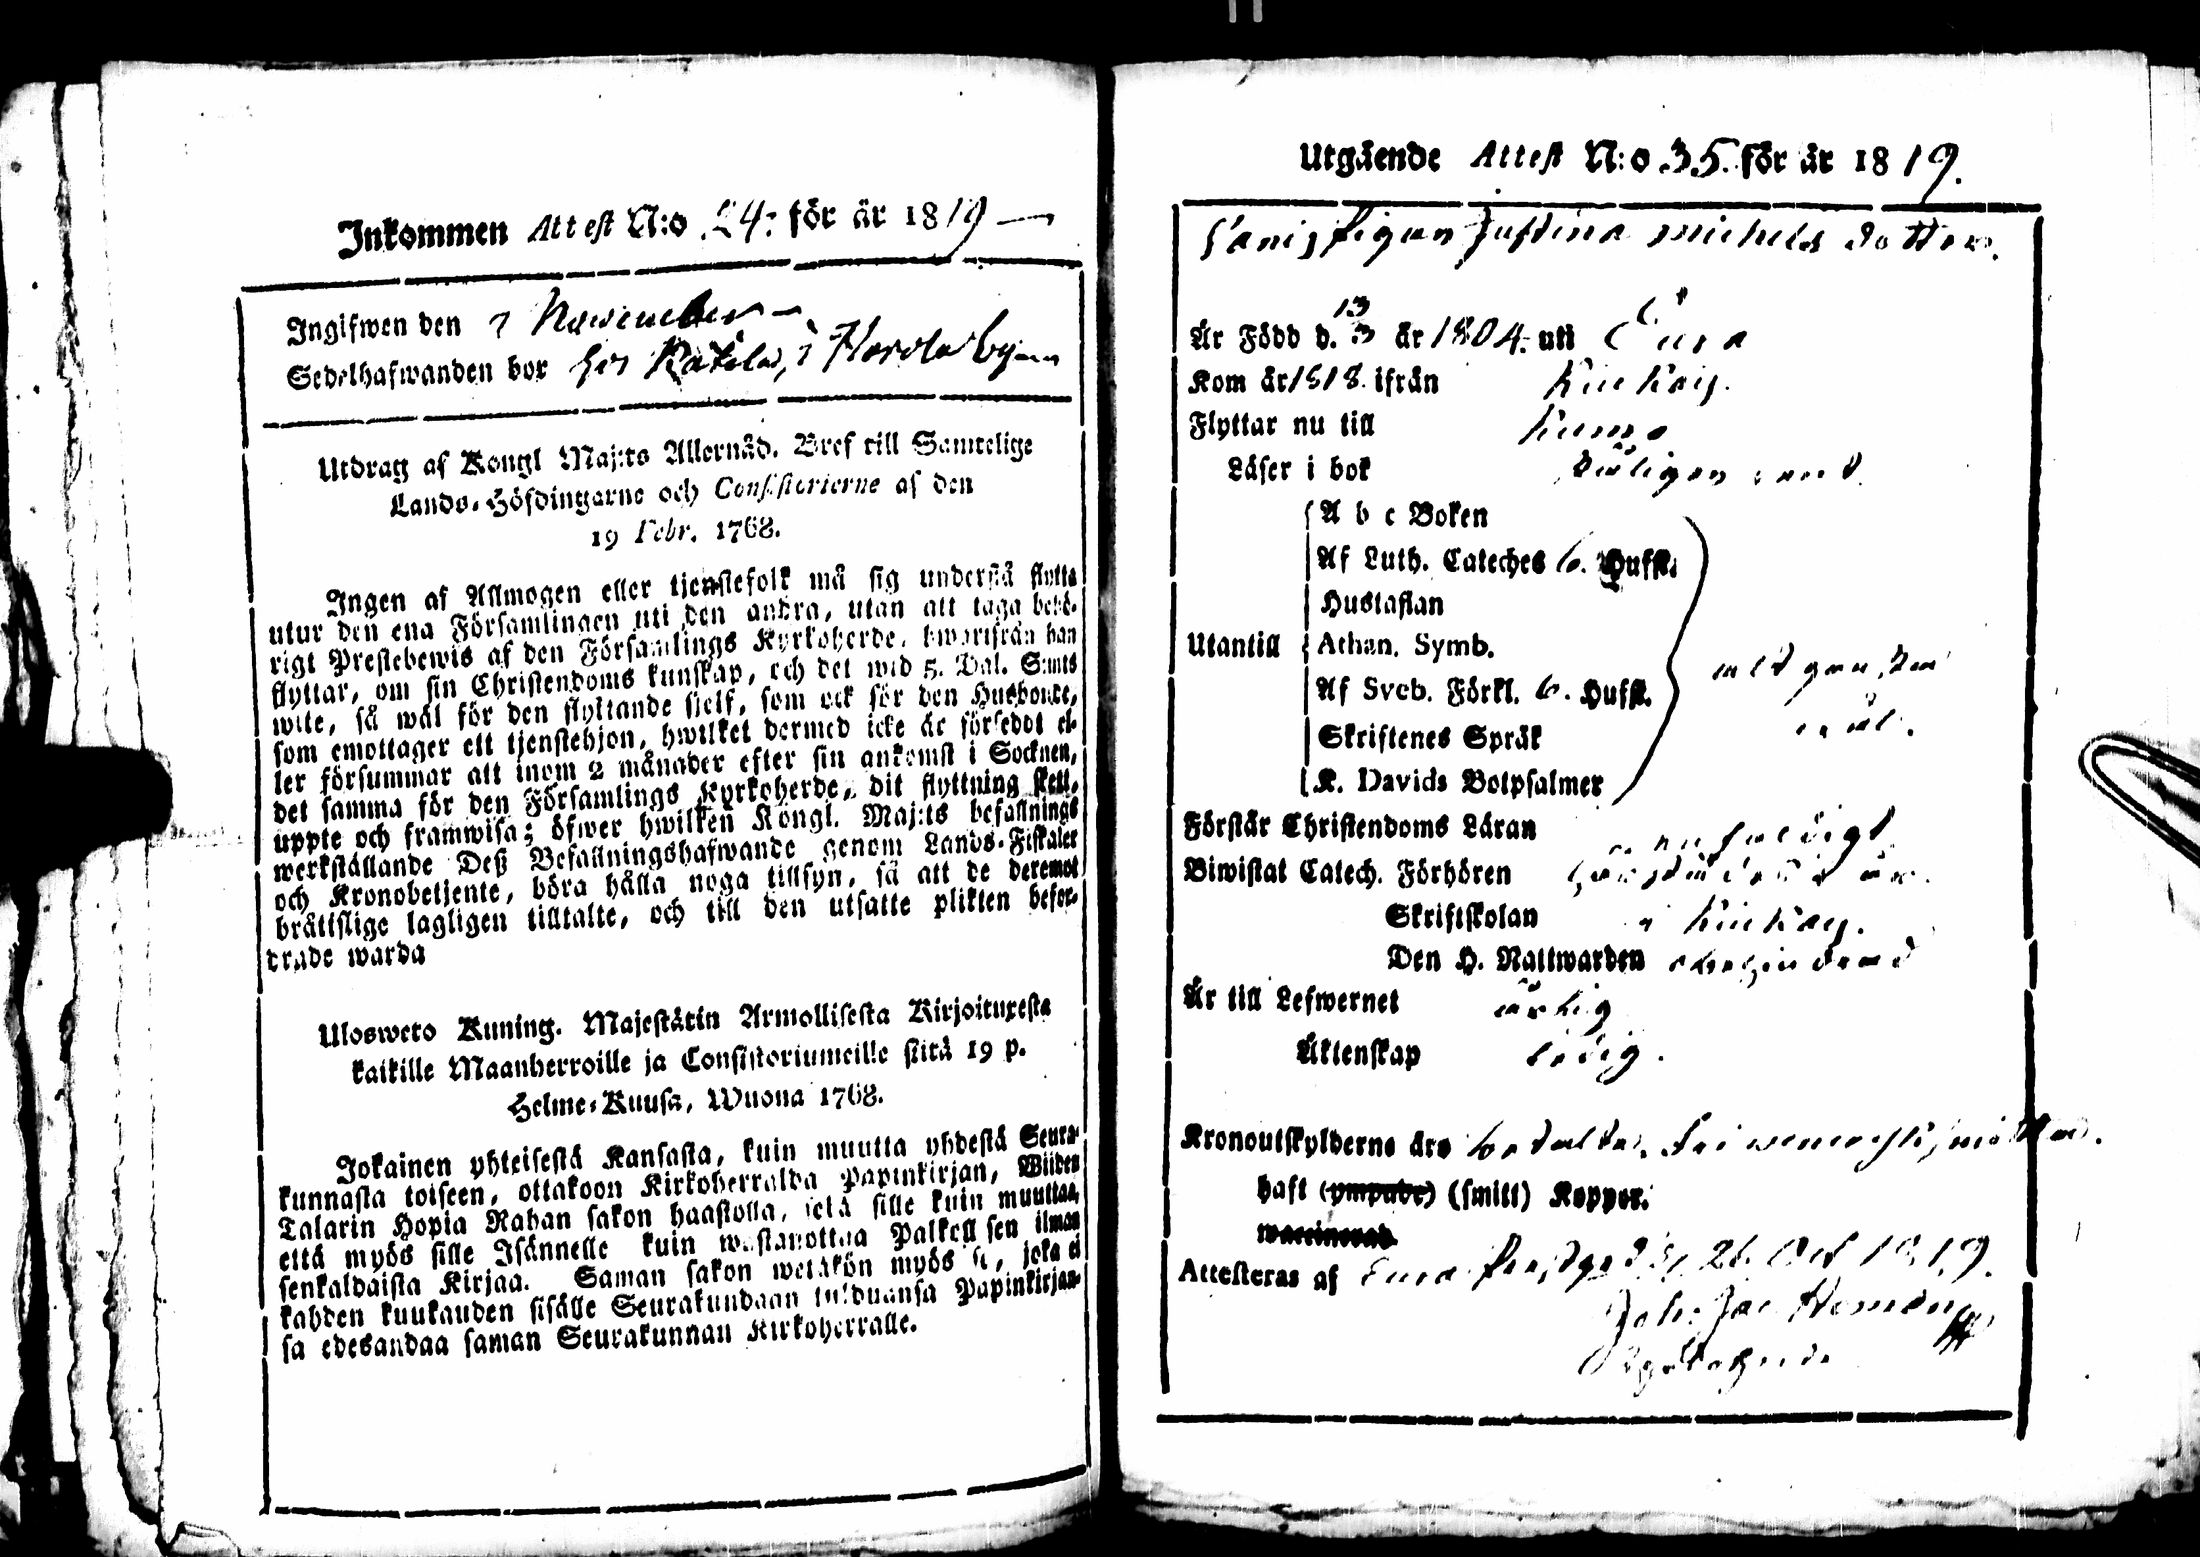 Inkommen Attest N:o 24. för år 1819
Ingifwen den 7 November
Sedelhafwanden bor hos Rätila, i Hordasbyn
Utdrag af Kongl Maj:ts Allernåd. Bref till Samtelige
Lands-Höfdingarne och Consistorierne af den
19 Febr. 1768.
Ingen af Allmogen eller tjenstefolk må sig understå flytta
utur den ena Församlingen uti den andra, utan att taga behö-
rigt Prestebewis af den Församlings Kyrkoherde, hwartifrån han
flyttar, om sin Christendoms kunskap, och det wid 5. Dal. S:mts
wite, så wäl för den flyttande sjelf, som ock för den Husbonde,
som emottager ett tjenstehjon, hwilket dermed icke är försedot el-
ler försummar att inom 2 månader efter sin ankomst i Socknen,
det samma för den Församlings Kyrkoherde, dit flyttning skett,
uppte och framwisa; öfwer hwilken Kongl. Maj:ts befallnings
werkställande Deß Befallningshafwande genom Lands-Fiskaler
och Kronobetjente, böra hålla noga tillsyn, så att de deremot
bråttslige lagligen tilltalte, och till den utsatte plikten befor-
drade warda
Ulosweto Kuning. Majestätin Armollisesta Kirjoituxesta
kaikille Maanherroille ja Consistoriumeille siitä 19 p.
Helme-Kuusa, Wuona 1768.
Jokainen yhteisestä Kansasta, kuin muutta yhdestä Seura-
kunnasta toiseen, ottakoon Kirkoherralda Papinkirjan, Wiiden
Talarin Hopia Rahan sakon haastolla, sekä sille kuin muuttaa,
että myös sille Isännelle kuin wastanottaa Palkollisen ilman
senkaldaista Kirjaa. Saman sakon wetäkön myös se, joka ei
kahden kuukauden sisälle Seurakundaan tulduansa Papinkirjan-
sa edesandaa saman Seurakunnan Kirkoherralle.
Utgående Attest N:o 35. för år 1819.
pigan Justina Michels dotter.
13
Är Född d. 3 år 1804. uti Eura
Kom år 1818. ifrån Kiukais.
Flyttar nu till Kumo
Läser i bok
A b c Boken
Af Luth. Cateches 6. Hufst.
Hustaflan
Utantill Athan. Symb.
Af Sveb. Förkl. 6. Hufst.
Skriftenes Språk
K. Davids Botpsalmer
Förstår Christendoms Läran enfaldigt
Biwistat Catech. Förhören
Skriftskolan i Kiukais.
Den H. Nattwarden obehindrad
Är till Lefwernet ärlig
Äktenskap ledig.
Kronoutskylderne äro betalta.
haft (ympade) (smitt) Koppor.
waccinerad.
Attesteras af Eura Prestgård d. 26 Oct 1819.
Joh: Jac